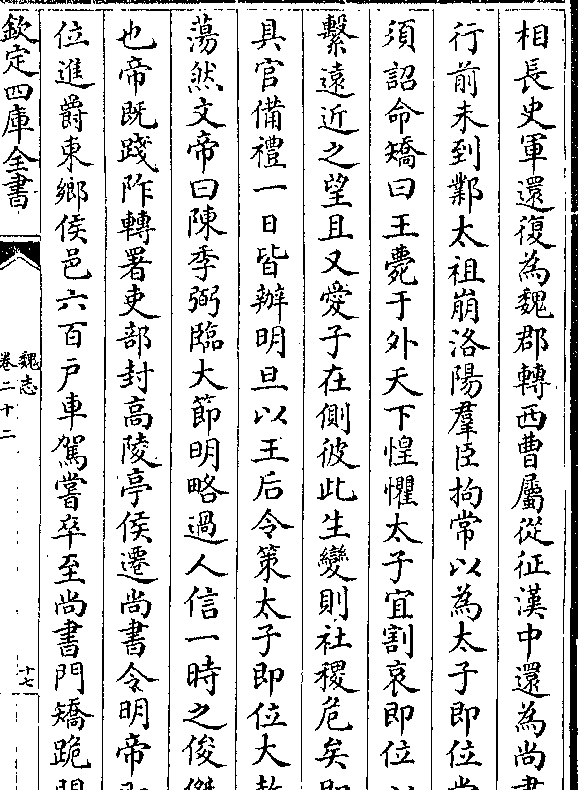 相長史軍還復為魏郡轉西曹屬從征漢中還為尚書
行前未到鄴太祖崩洛陽羣臣拘常以為太子即位當
須詔命矯曰王薨于外天下惶懼太子宜割哀即位以
繫遠近之望且又愛子在側彼此生變則社稷危矣即
具官備禮一日皆辦明旦以王后令策太子即位大赦
蕩然文帝曰陳季弼臨大節明略過人信一時之俊傑
也帝既踐阼轉署吏部封高陵亭侯遷尚書令明帝即
位進爵東鄉侯邑六百戶車駕嘗卒至尚書門矯跪問
欽定四庫全書
魏志
卷二十二
十七